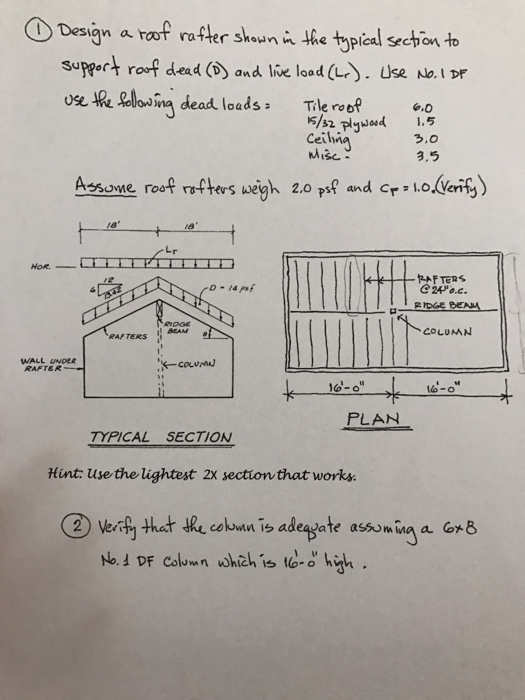 ① Design a roof rafter shown in the typical section to
support roof dead (D) and live load (Lr). Use No. 1 DF
Use the following dead loads: Tile roof 6.0
15/32 plywood 1.5
Ceiling 3.0
Misc. 3.5
Assume roof rafters weigh 2.0 psf and CF = 1.0. (Verify)
18' 18'
Lr
HOR.
12
6
13.42
D = 14 psf
RAFTERS
RIDGE
BEAM
WALL UNDER
RAFTER
COLUMN
TYPICAL SECTION
RAFTERS
@ 24" o.c.
RIDGE BEAM
COLUMN
16'-0" 16'-0"
PLAN
Hint: Use the lightest 2X section that works.
② Verify that the column is adequate assuming a 6x8
No. 1 DF Column which is 16'-0" high.